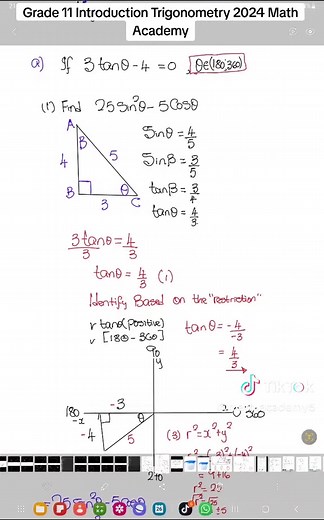 Grade 11 Introduction Trigonometry 2024 Math
Academy
a) If 3tanθ-4=0, θ∈(180;360)
(1) Find 25sin²θ-5cosθ
A
β
4
5
B
θ
C
3
Sinθ = 4/5
Sinβ = 3/5
tanβ = 3/4
tanθ = 4/3
3tanθ/3 = 4/3
tanθ = 4/3 (1)
Identify Based on the "restriction"
tanθ(positive)
[180-360]
tanθ = -4/-3
= 4/3
90
y
-3
180
-x
θ
0
360
-4
5
(3) r²=x²+y²
r²=(-3)²+(-4)²
= 9+16
r²=25
270
TikTok